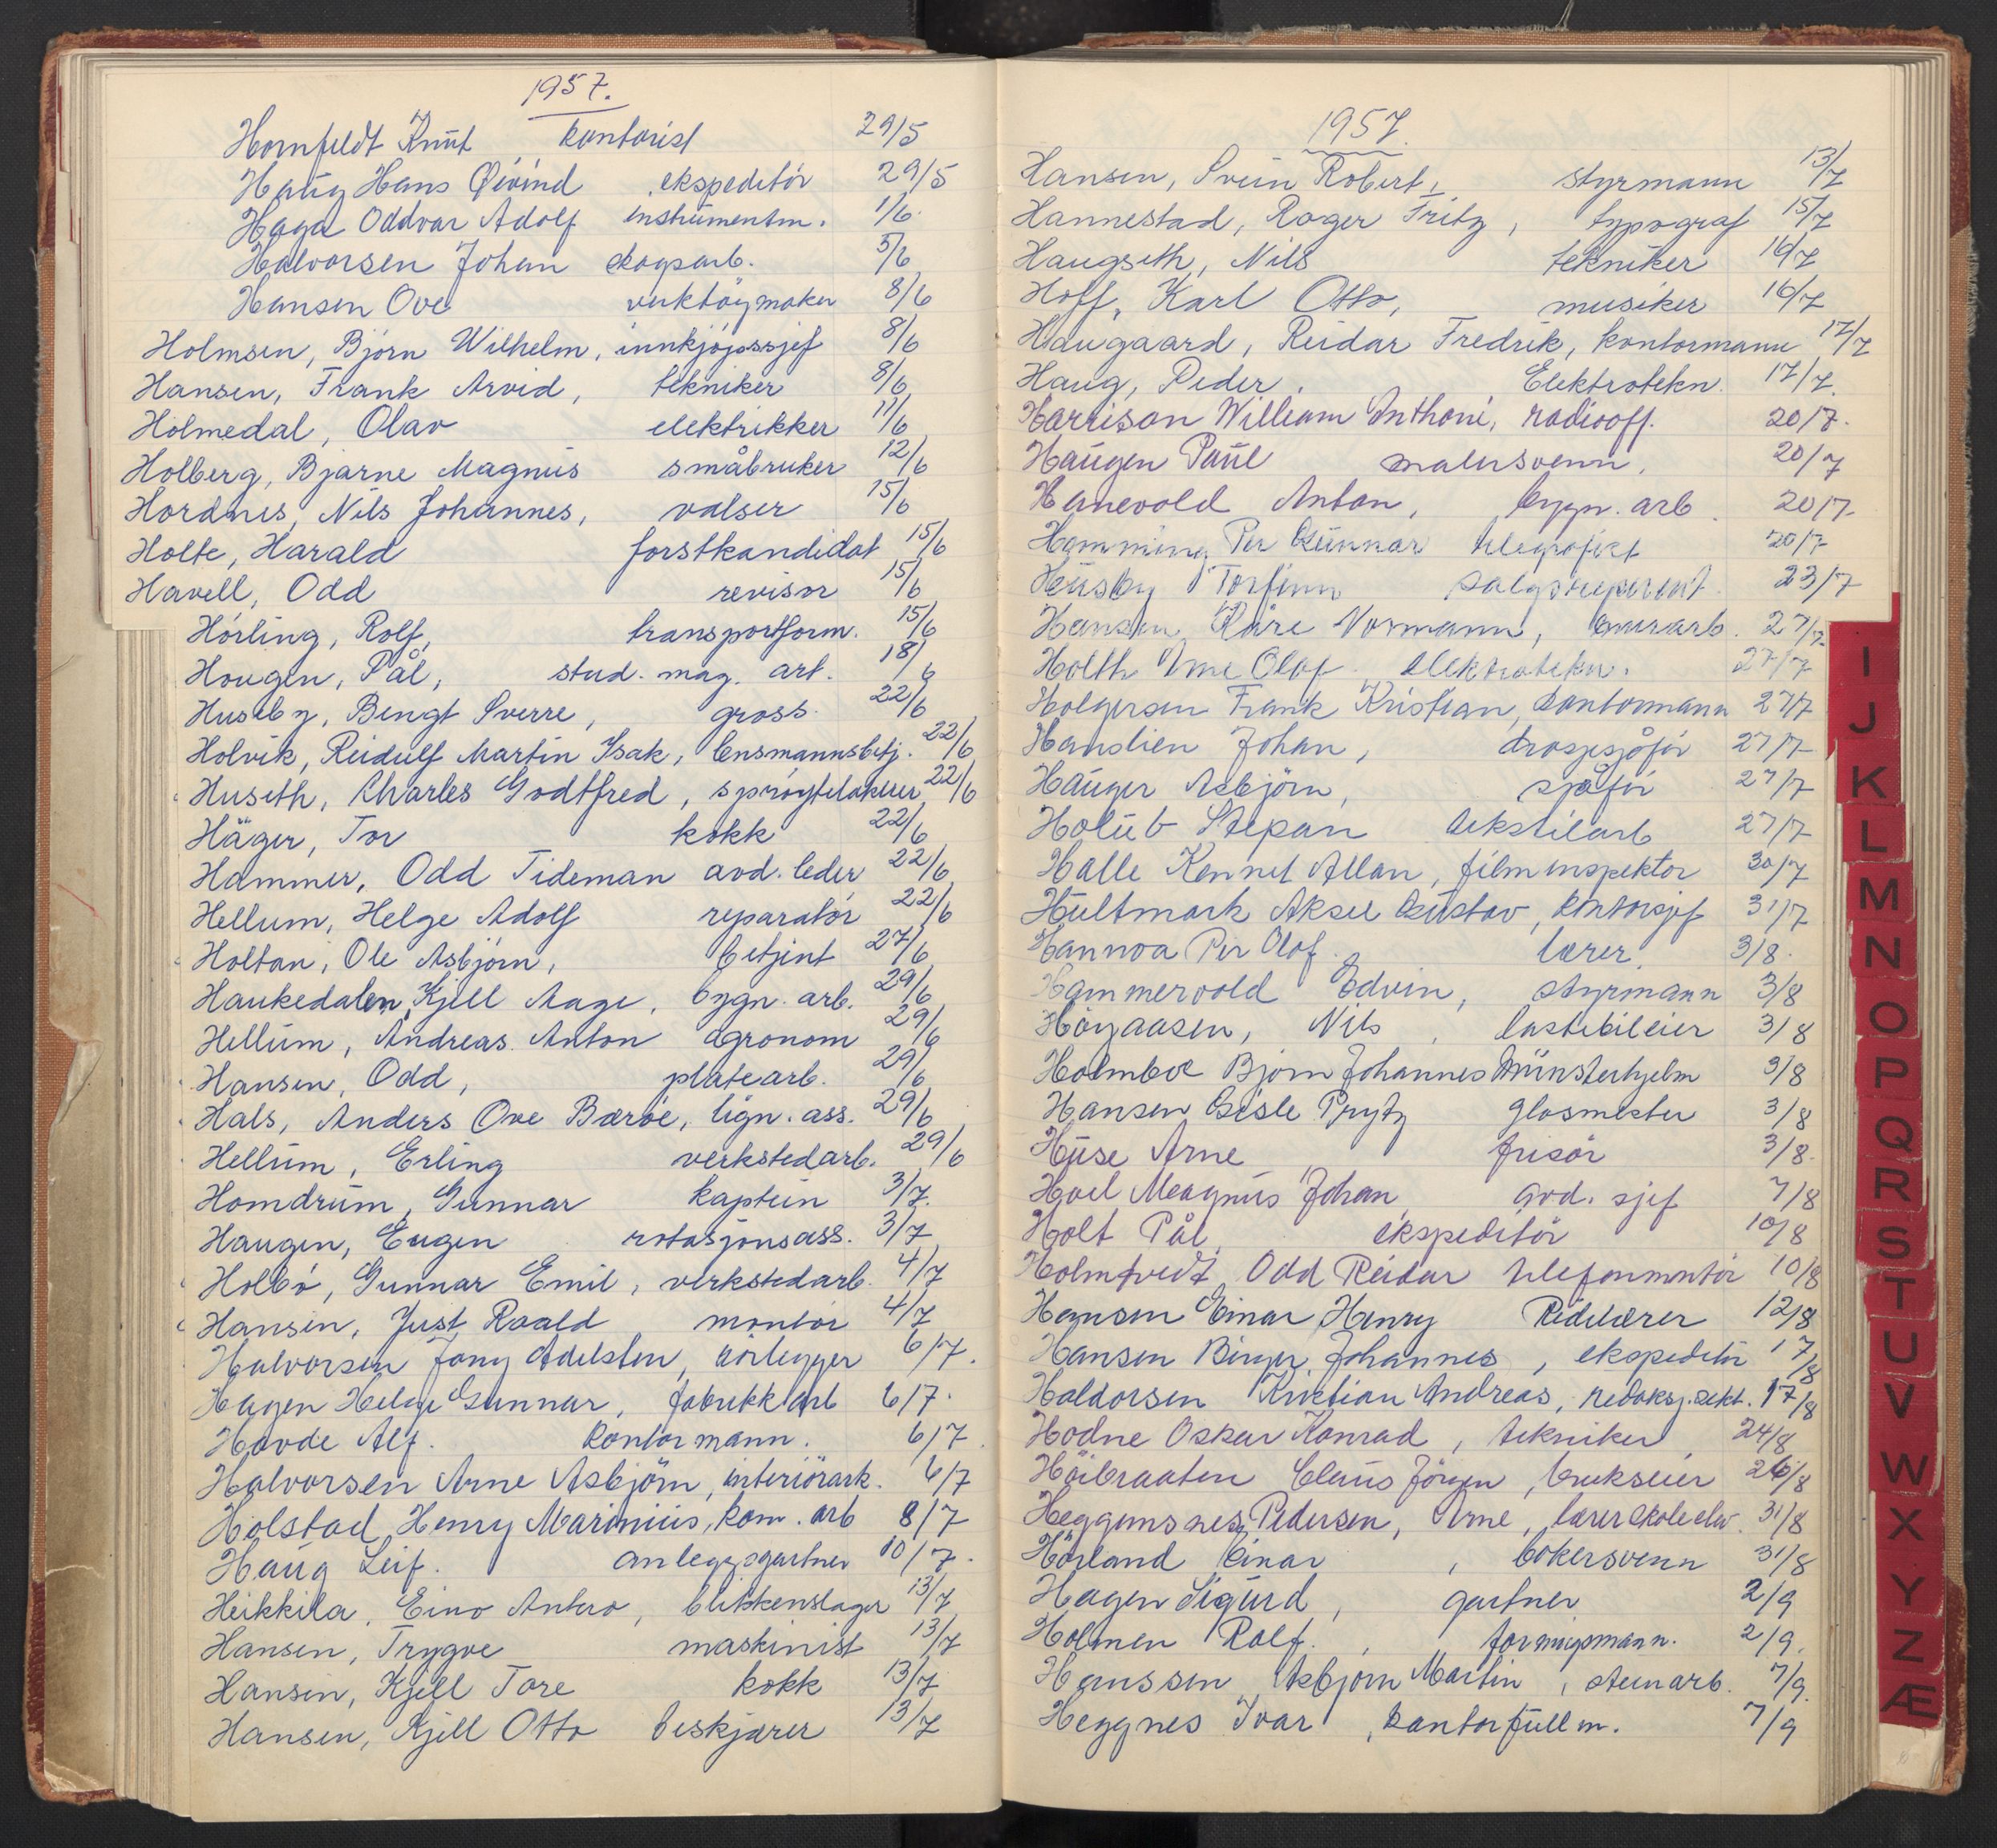 1957.
Hornfeldt Knut kontorist 29/5
Haug Hans Øivind ekspeditör 29/5
Haga Oddvar Adolf instrumentm. 1/6.
Halvorsen Johan skogsarb. 5/6
Hansen Ove verktöymaker 8/6
Holmsen, Björn Wilhelm, innkjöpssjef 8/6
Hansen, Frank Arvid, tekniker 8/6
Holmedal, Olav elektrikker 11/6
Holberg, Bjarne Magnus småbruker 12/6
Hordnes, Nils Johannes, valser 15/6
Holte, Harald forstkandidat 15/6
Havell, Odd revisor 15/6
Hörling, Rolf, transportform. 15/6
Hougen, Pål, stud. mag. art. 18/6
Huseby, Bengt Sverre, gross. 22/6
Holvik, Reidulf Martin Isak, lensmannsbetj. 22/6
Huseth, Charles Godtfred, spröytelakerer 22/6
Häger, Tor kokk 22/6
Hammer, Odd Tideman avd. leder 22/6
Hellum, Helge Adolf reparatör 22/6
Holtan, Ole Asbjörn, betjent 27/6
Haukedalen, Kjell Aage, bygn. arb. 29/6
Hellum, Andreas Anton agronom 29/6
Hansen, Odd, platearb. 29/6
Hals, Anders Ove Barøe, lign. ass. 29/6
Hellum, Erling verkstedarb. 29/6
Homdrum, Gunnar kaptein 3/7.
Haugen, Eugen rotasjonsass. 3/7
Holbö, Gunnar Emil, verkstedarb. 4/7
Hansen, Just Roald montör 4/7
Halvorsen Jony Adelsten, rörlegger 6/7.
Hagen Helge Gunnar, fabrikkarb 6/7.
Hovde Alf. kontormann. 6/7.
Halvorsen Arne Asbjörn, interiörark. 6/7
Holstad, Henry Marinius, kom. arb 8/7
Haug Leif. anleggsgartner 10/7.
Heikkila, Eino Antero, blikkenslager 13/7
Hansen, Trygve maskinist 13/7
Hansen, Kjell Tore kokk 13/7
Hansen, Kjell Otto beskjærer 13/7
1957.
Hansen, Svein Robert, styrmann 13/7
Hannestad, Roger Fritz, typograf 15/7
Haugseth, Nils tekniker 16/7
Hoff, Karl Otto, musiker 16/7
Haugaard, Reidar Fredrik, kontormann 17/7
Haug, Peder, Elektrotekn. 17/7.
Harrison William Anthoni, radiooff. 20/7.
Haugen Paul malersvenn, 20/7
Hanevold Anton, bygn. arb. 20/7
Hemming Per Gunnar telegrafist 20/7
Husby Torfinn salgsrepresent. 23/7
Hansen Kåre Normann, murarb. 27/7.
Holth Arne Olaf. elektrotekn. 27/7
Holgersen Frank Kristian, kontormann 27/7
Hanslien Johan, drosjesjåför 27/7
Hauger Asbjörn, sjåför 27/7
Holub Stepan tekstilarb 27/7
Halle Kennet Allan, filminspektör 30/7
Hultmark Aksel Gustav, kontorsjef 31/7
Hannoa Per Olof. lærer, 3/8.
Hammervold Edvin, styrmann 3/8
Höyaasen, Nils, lastebileier 3/8
Holmboe Bjorn Johannes Münsterhjelm 3/8
Hansen Gisle Prytz glasmester 3/8
Huse Arne frisör 3/8.
Hoel Magnus Johan avd. sjef 7/8
Holt Pål, ekspeditör 10/8
Holmtvedt Odd Reidar telefonmontör 10/8
Hansen Einar Henry Ridelærer 12/8
Hansen Birger Johannes, ekspeditör 17/8
Haldorsen Kristian Andreas, redaksj.sekt. 17/8
Hodne Oskar Konrad, tekniker, 24/8
Höibraaten Claus Jörgen, brukseier 26/8
Heggemsnes Pedersen, Arne, lærerskoleelev. 31/8
Hörland Einar, bokersvenn 31/8
Hagen Sigurd, gartner 2/9
Holmen Rolf., formingsmann. 2/9.
Hanssen Asbjörn Martin, stenarb. 7/9.
Heggnes Ivar, kontorfullm. 7/9
I
J
K
L
M
N
O
P
Q
R
S
T
U
V
W
X
Y
Z
Æ